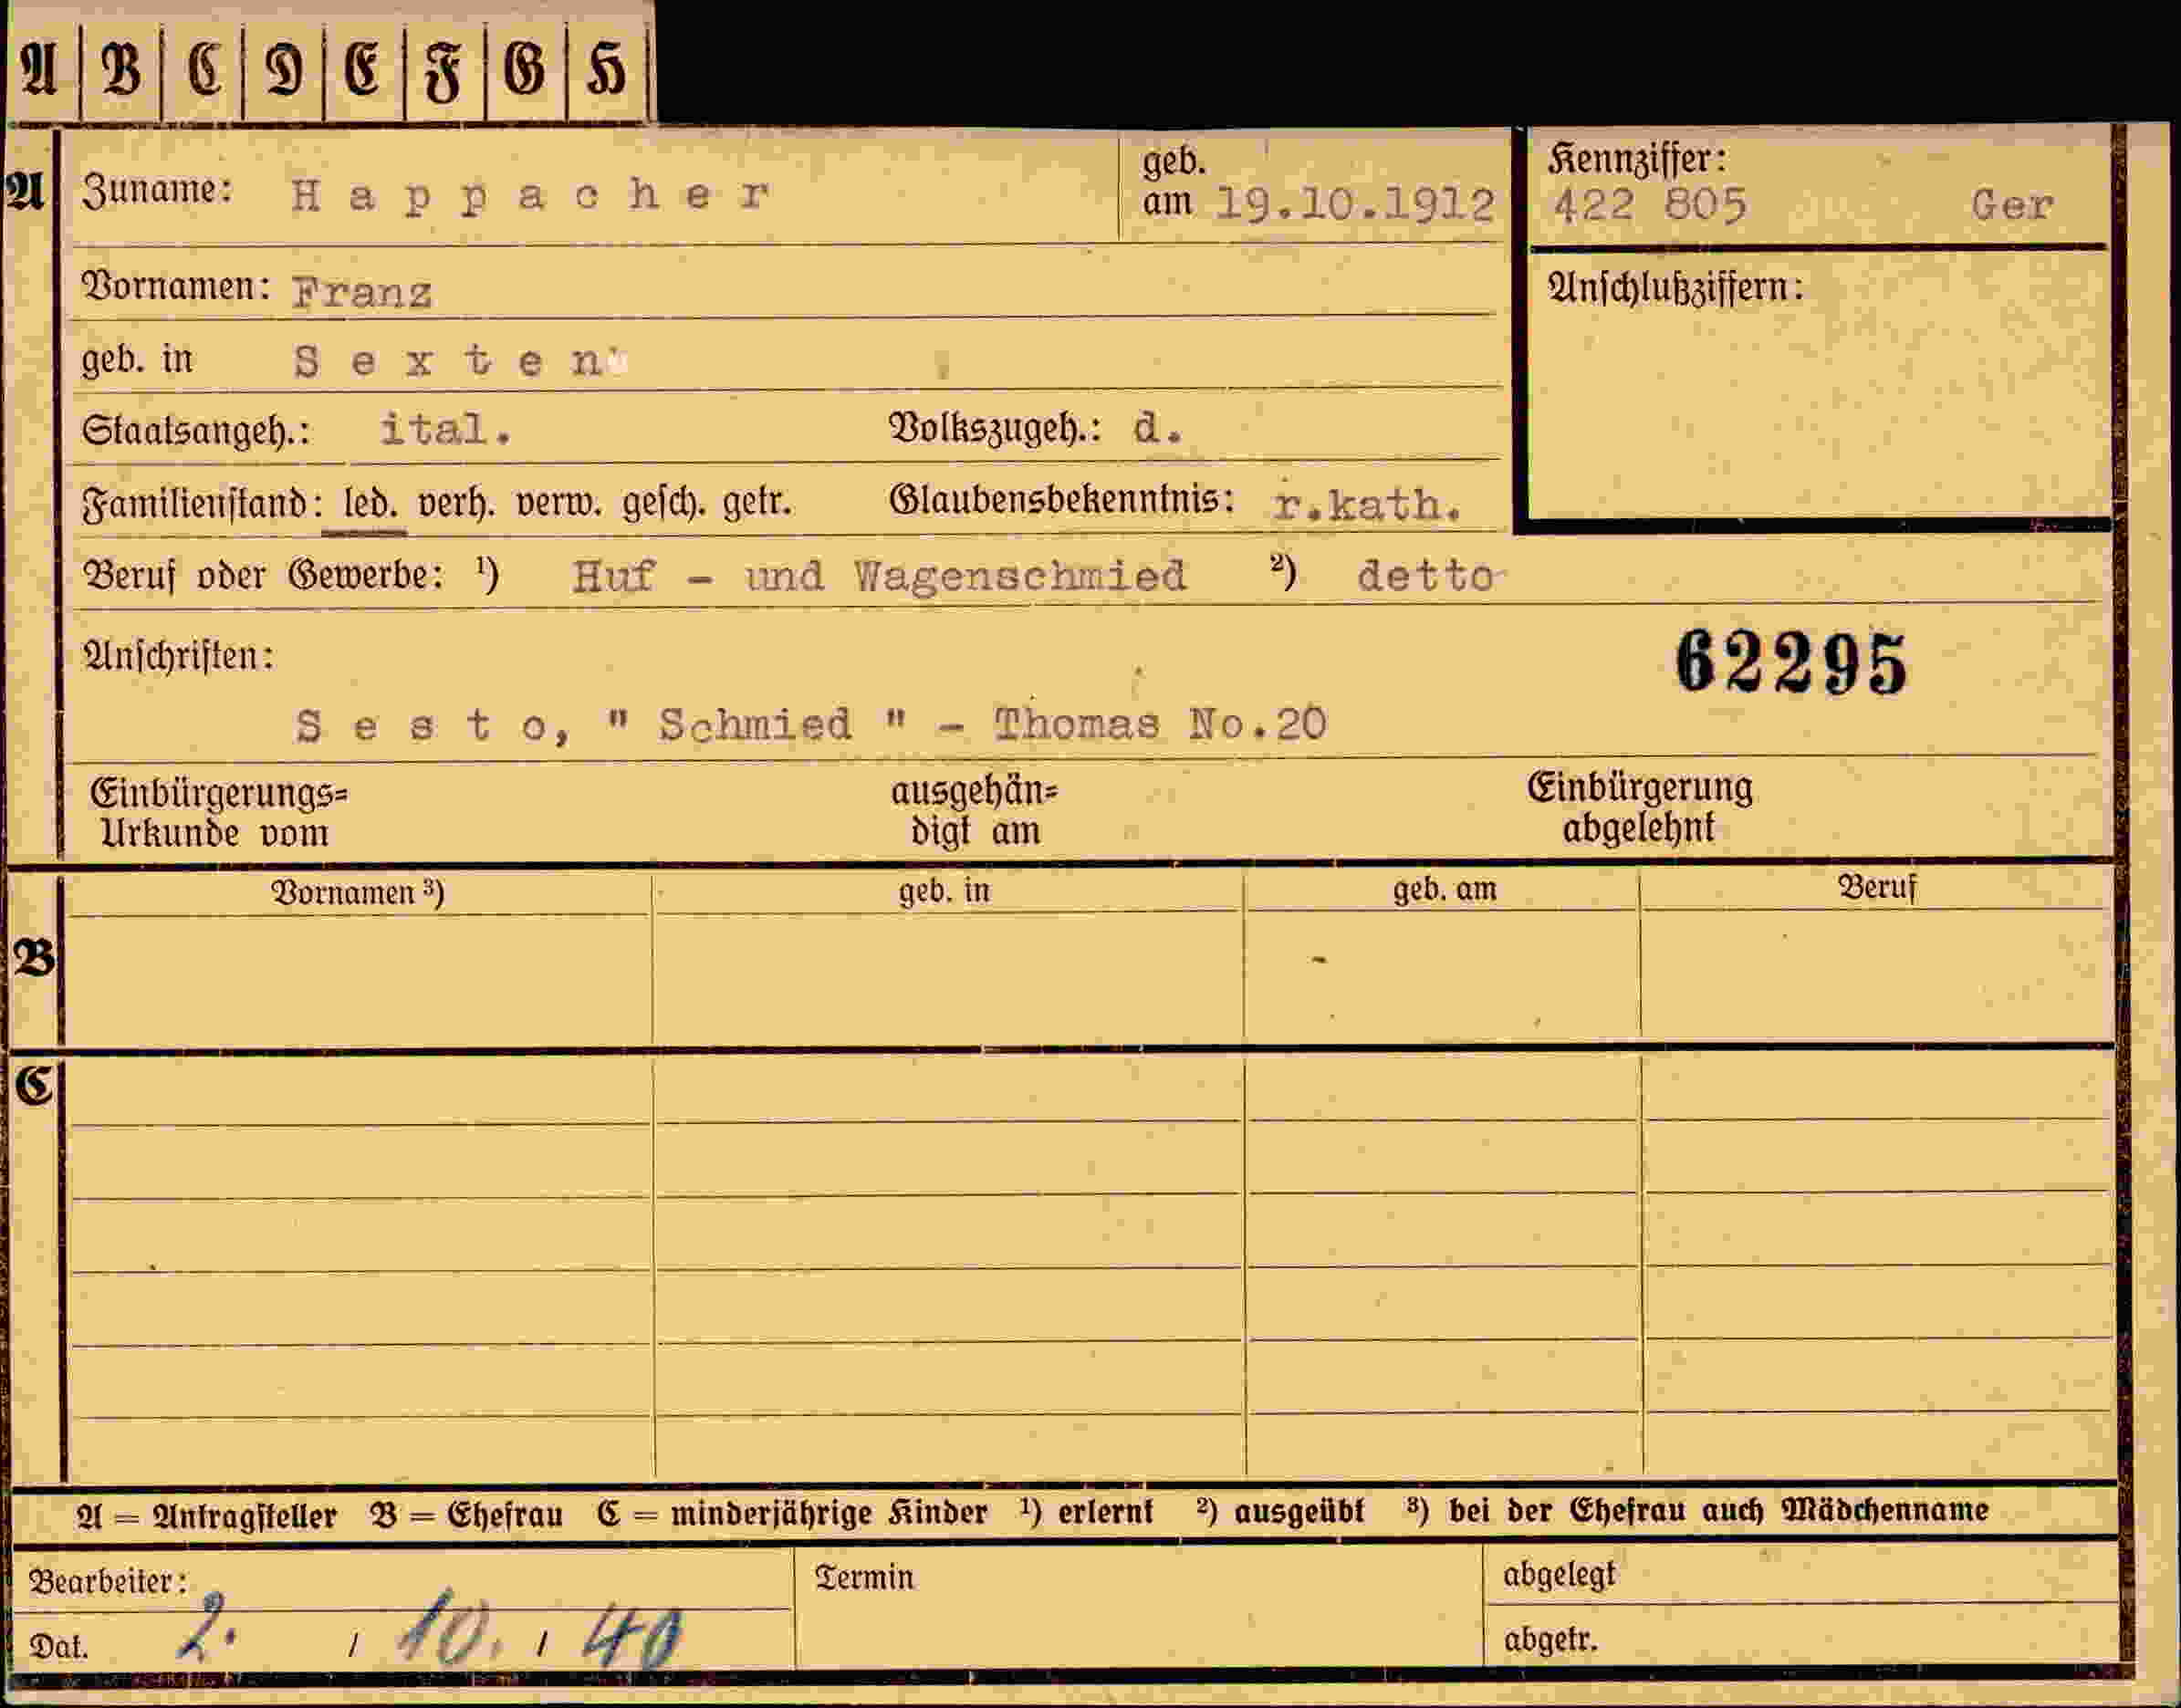 A B C D E F G H
A Zuname: Happacher geb. am 19.10.1912 Kennziffer: 422 805 Ger
Vornamen: Franz Anschlußziffern:
geb. in Sexten
Staatsangeh.: ital. Volkszugeh.: d.
Familienstand: led. verh. verw. gesch. getr. Glaubensbekenntnis: r.kath.
Beruf oder Gewerbe: ¹) Huf - und Wagenschmied ²) detto
Anschriften: 62295
Sesto, " Schmied " - Thomas No.20
Einbürgerungs= ausgehän= Einbürgerung
Urkunde vom digt am abgelehnt
Vornamen ³) geb. in geb. am Beruf
B
C
A = Antragsteller B = Ehefrau C = minderjährige Kinder ¹) erlernt ²) ausgeübt ³) bei der Ehefrau auch Mädchenname
Bearbeiter: Termin abgelegt
Dat. 2. / 10. / 40 abgetr.